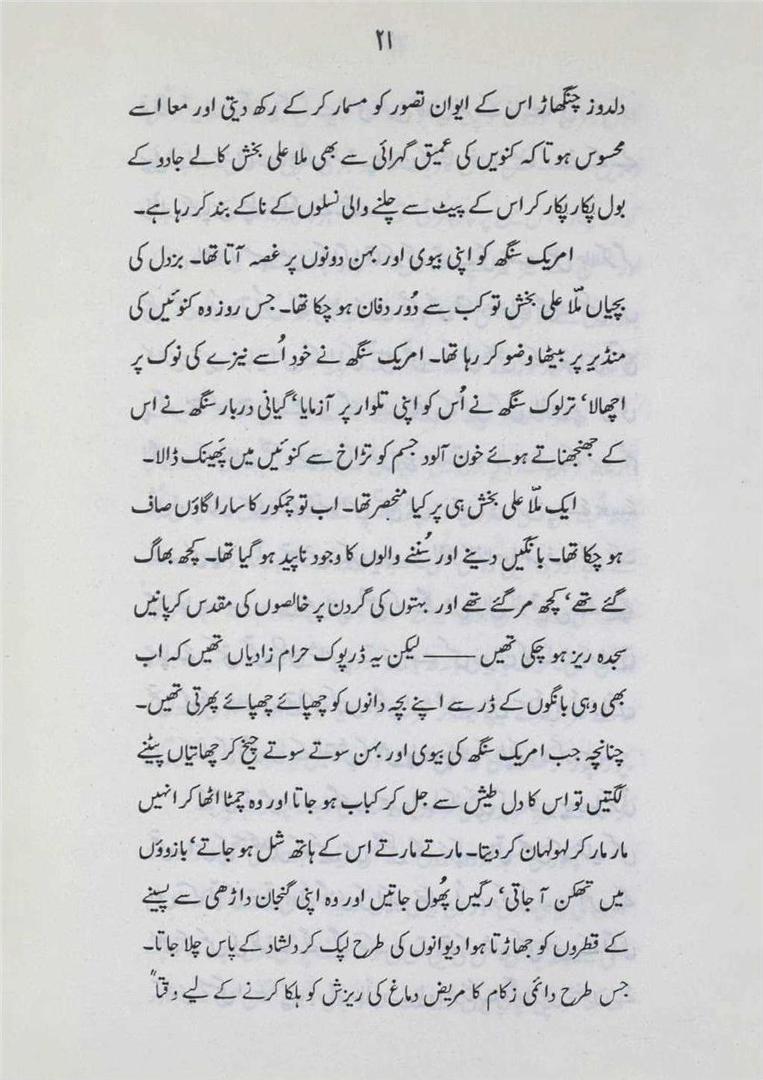 ۲۱
دلدوز چنگھاڑ اس کے ایوان تصور کو مسمار کر کے رکھ دیتی اور معا اسے
محسوس ہوتا کہ کنویں کی عمیق گہرائی سے بھی ملا علی بخش کالے جادو کے
بول پکار پکار کر اس کے پیٹ سے چلنے والی نسلوں کے ناکے بند کر رہا ہے۔
امریک سنگھ کو اپنی بیوی اور بہن دونوں پر غصہ آتا تھا۔ بزدل کی
بچیاں ملّا علی بخش تو کب سے دُور دفان ہو چکا تھا۔ جس روز وہ کنوئیں کی
منڈیر پر بیٹھا وضو کر رہا تھا۔ امریک سنگھ نے خود اُسے نیزے کی نوک پر
اچھالا‘ ترلوک سنگھ نے اُس کو اپنی تلوار پر آزمایا‘ گیانی دربار سنگھ نے اس
کے جھنجھناتے ہوئے خون آلود جسم کو تڑاخ سے کنوئیں میں پَھینک ڈالا۔
ایک ملّا علی بخش ہی پر کیا منحصر تھا۔ اب تو چمکور کا سارا گاؤں صاف
ہو چکا تھا۔ بانگیں دینے اور سُننے والوں کا وجود ناپید ہو گیا تھا۔ کچھ بھاگ
گئے تھے‘ کچھ مر گئے تھے اور بہتوں کی گردن پر خالصوں کی مقدس کرپانیں
سجدہ ریز ہو چکی تھیں ——— لیکن یہ ڈرپوک حرام زادیاں تھیں کہ اب
بھی وہی بانگوں کے ڈر سے اپنے بچہ دانوں کو چھپائے چھپائے پھرتی تھیں۔
چنانچہ جب امریک سنگھ کی بیوی اور بہن سوتے سوتے چیخ کر چھاتیاں پیٹنے
لگتیں تو اس کا دل طیش سے جل کر کباب ہو جاتا اور وہ چمٹا اٹھا کر انہیں
مار مار کر لہولہان کر دیتا۔ مارتے مارتے اس کے ہاتھ شل ہو جاتے‘ بازوؤں
میں تھکن آ جاتی‘ رگیں پھُول جاتیں اور وہ اپنی گنجان داڑھی سے پسینے
کے قطروں کو جھاڑتا ہوا دیوانوں کی طرح لپک کر دلشاد کے پاس چلا جاتا۔
جس طرح دائمی زکام کا مریض دماغ کی ریزش کو ہلکا کرنے کے لیے وقتاً